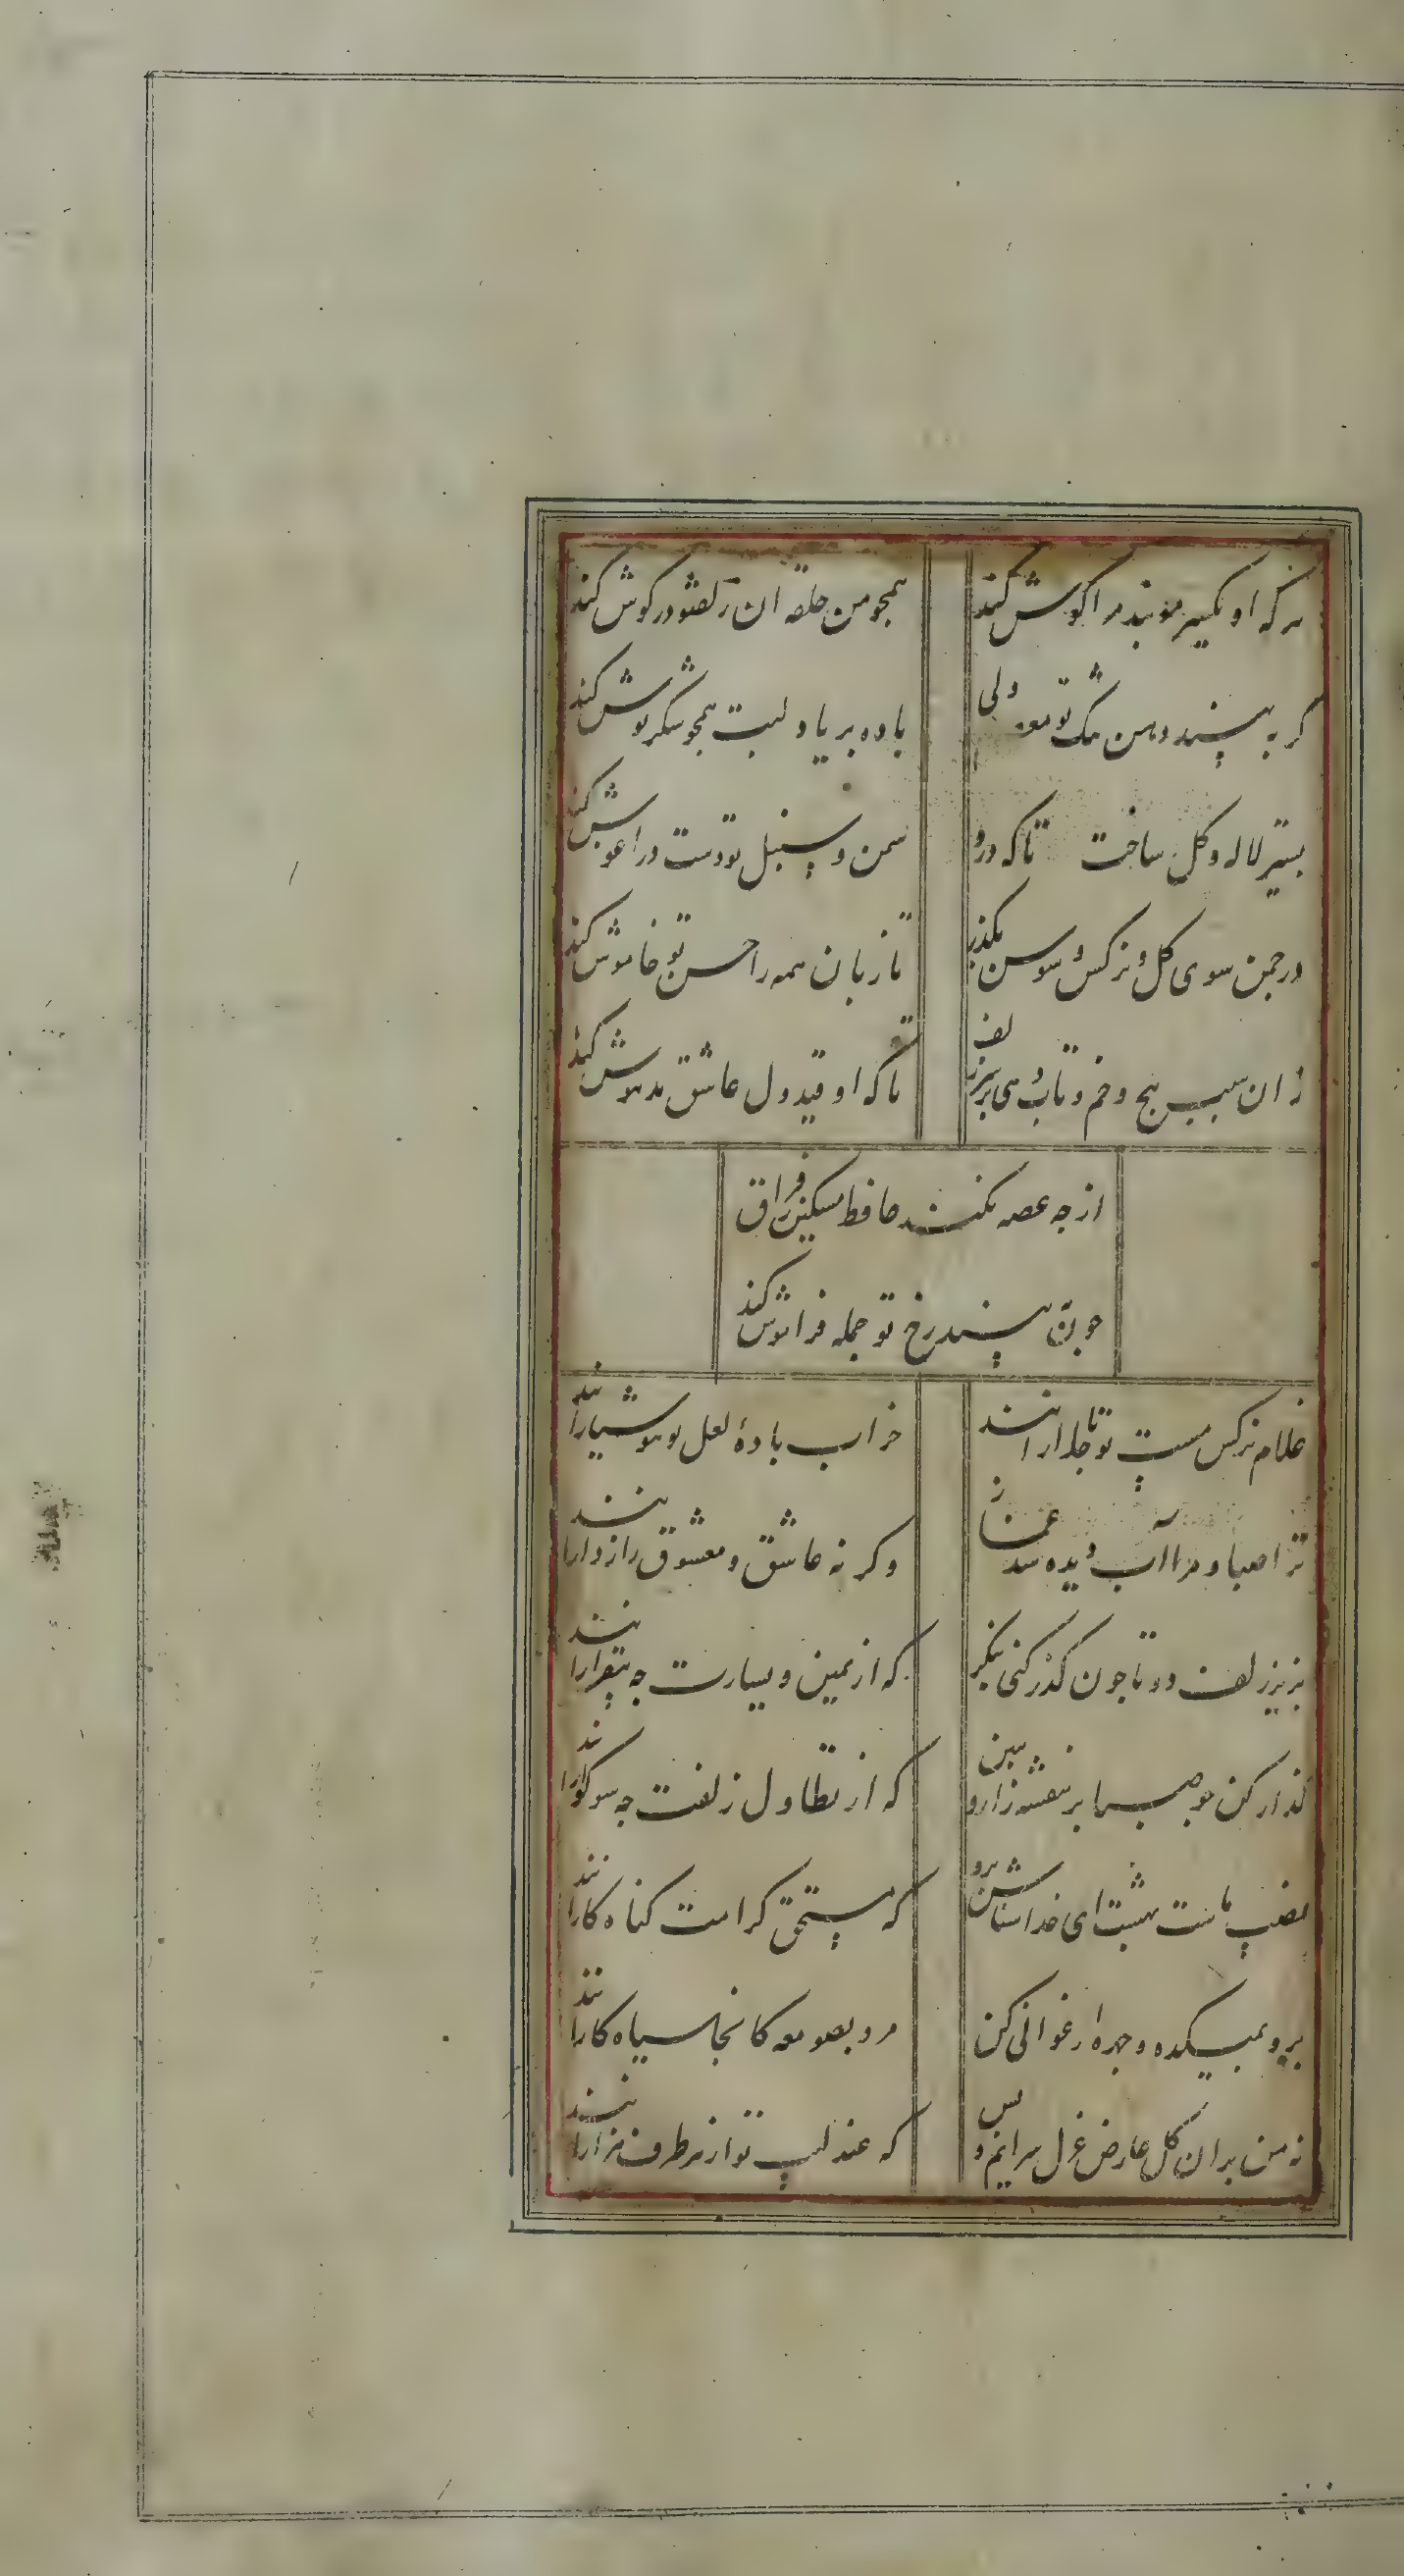 هر که او یکسر مو بند مرا گوش کند
همچو من حلقه آن زلف تو در گوش کند
گر به بیند دهن تنگ تو معه ولی
باده بر یاد لبت همچو شکر نوش کند
بستر لاله و گل ساخت تا که درو
سمن و سنبل تو دست در اغوش کند
در چمن سوی گل و نرکس و سوسن بگذر
تا زبان همه را حسن تو خاموش کند
زان سبب پیچ و خم و تاب دهی بر سر زلف
تا که او قید دل عاشق مدهوش کند
از چه غصه نکشد حافظ مسکین فراق
چون به بیند رخ تو جمله فراموش کند
غلام نرکس مست تو تاجدارانند
خراب بادهٔ لعل تو هوشیارانند
ترا صبا و مرا آب دیده شد غماز
وکر نه عاشق و معشوق رازدارانند
بزیر زلف دوتا چون کذر کنی بنکر
که از یمین و یسارت چه بیقرارانند
کذار کن چو صبا بر بنفشه زار و ببین
که از تطاول زلفت چه سوکوارانند
نصیب ماست بهشت ای خداشناس برو
که مستحق کرامت کناه کارانند
برو بمیکده و چهره ارغوانی کن
مرو بصومعه کانجا سیاه کارانند
نه من بران کل عارض غزل سرایم و بس
که عندلیب تو از هر طرف هزارانند